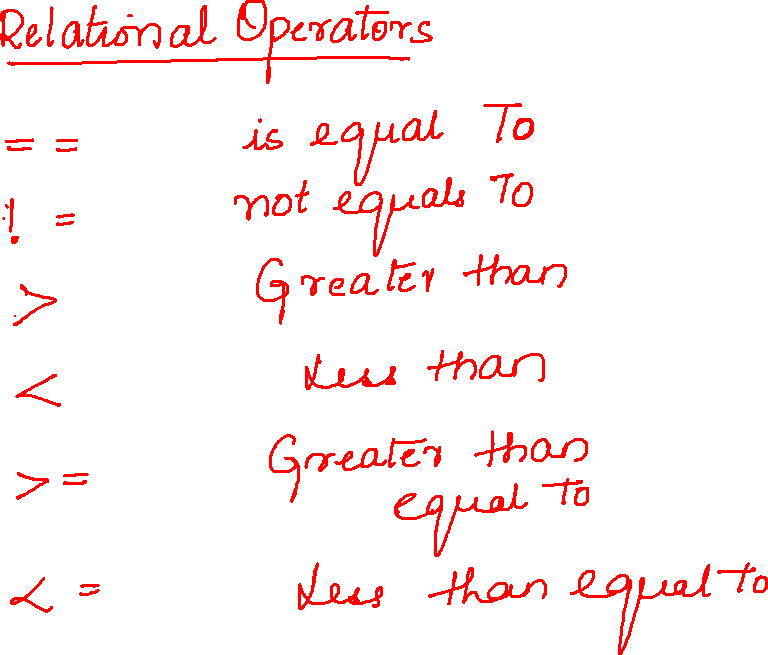 Relational Operators
== is equal To
!= not equals To
> Greater than
< Less than
>= Greater than
equal To
<= Less than equal To